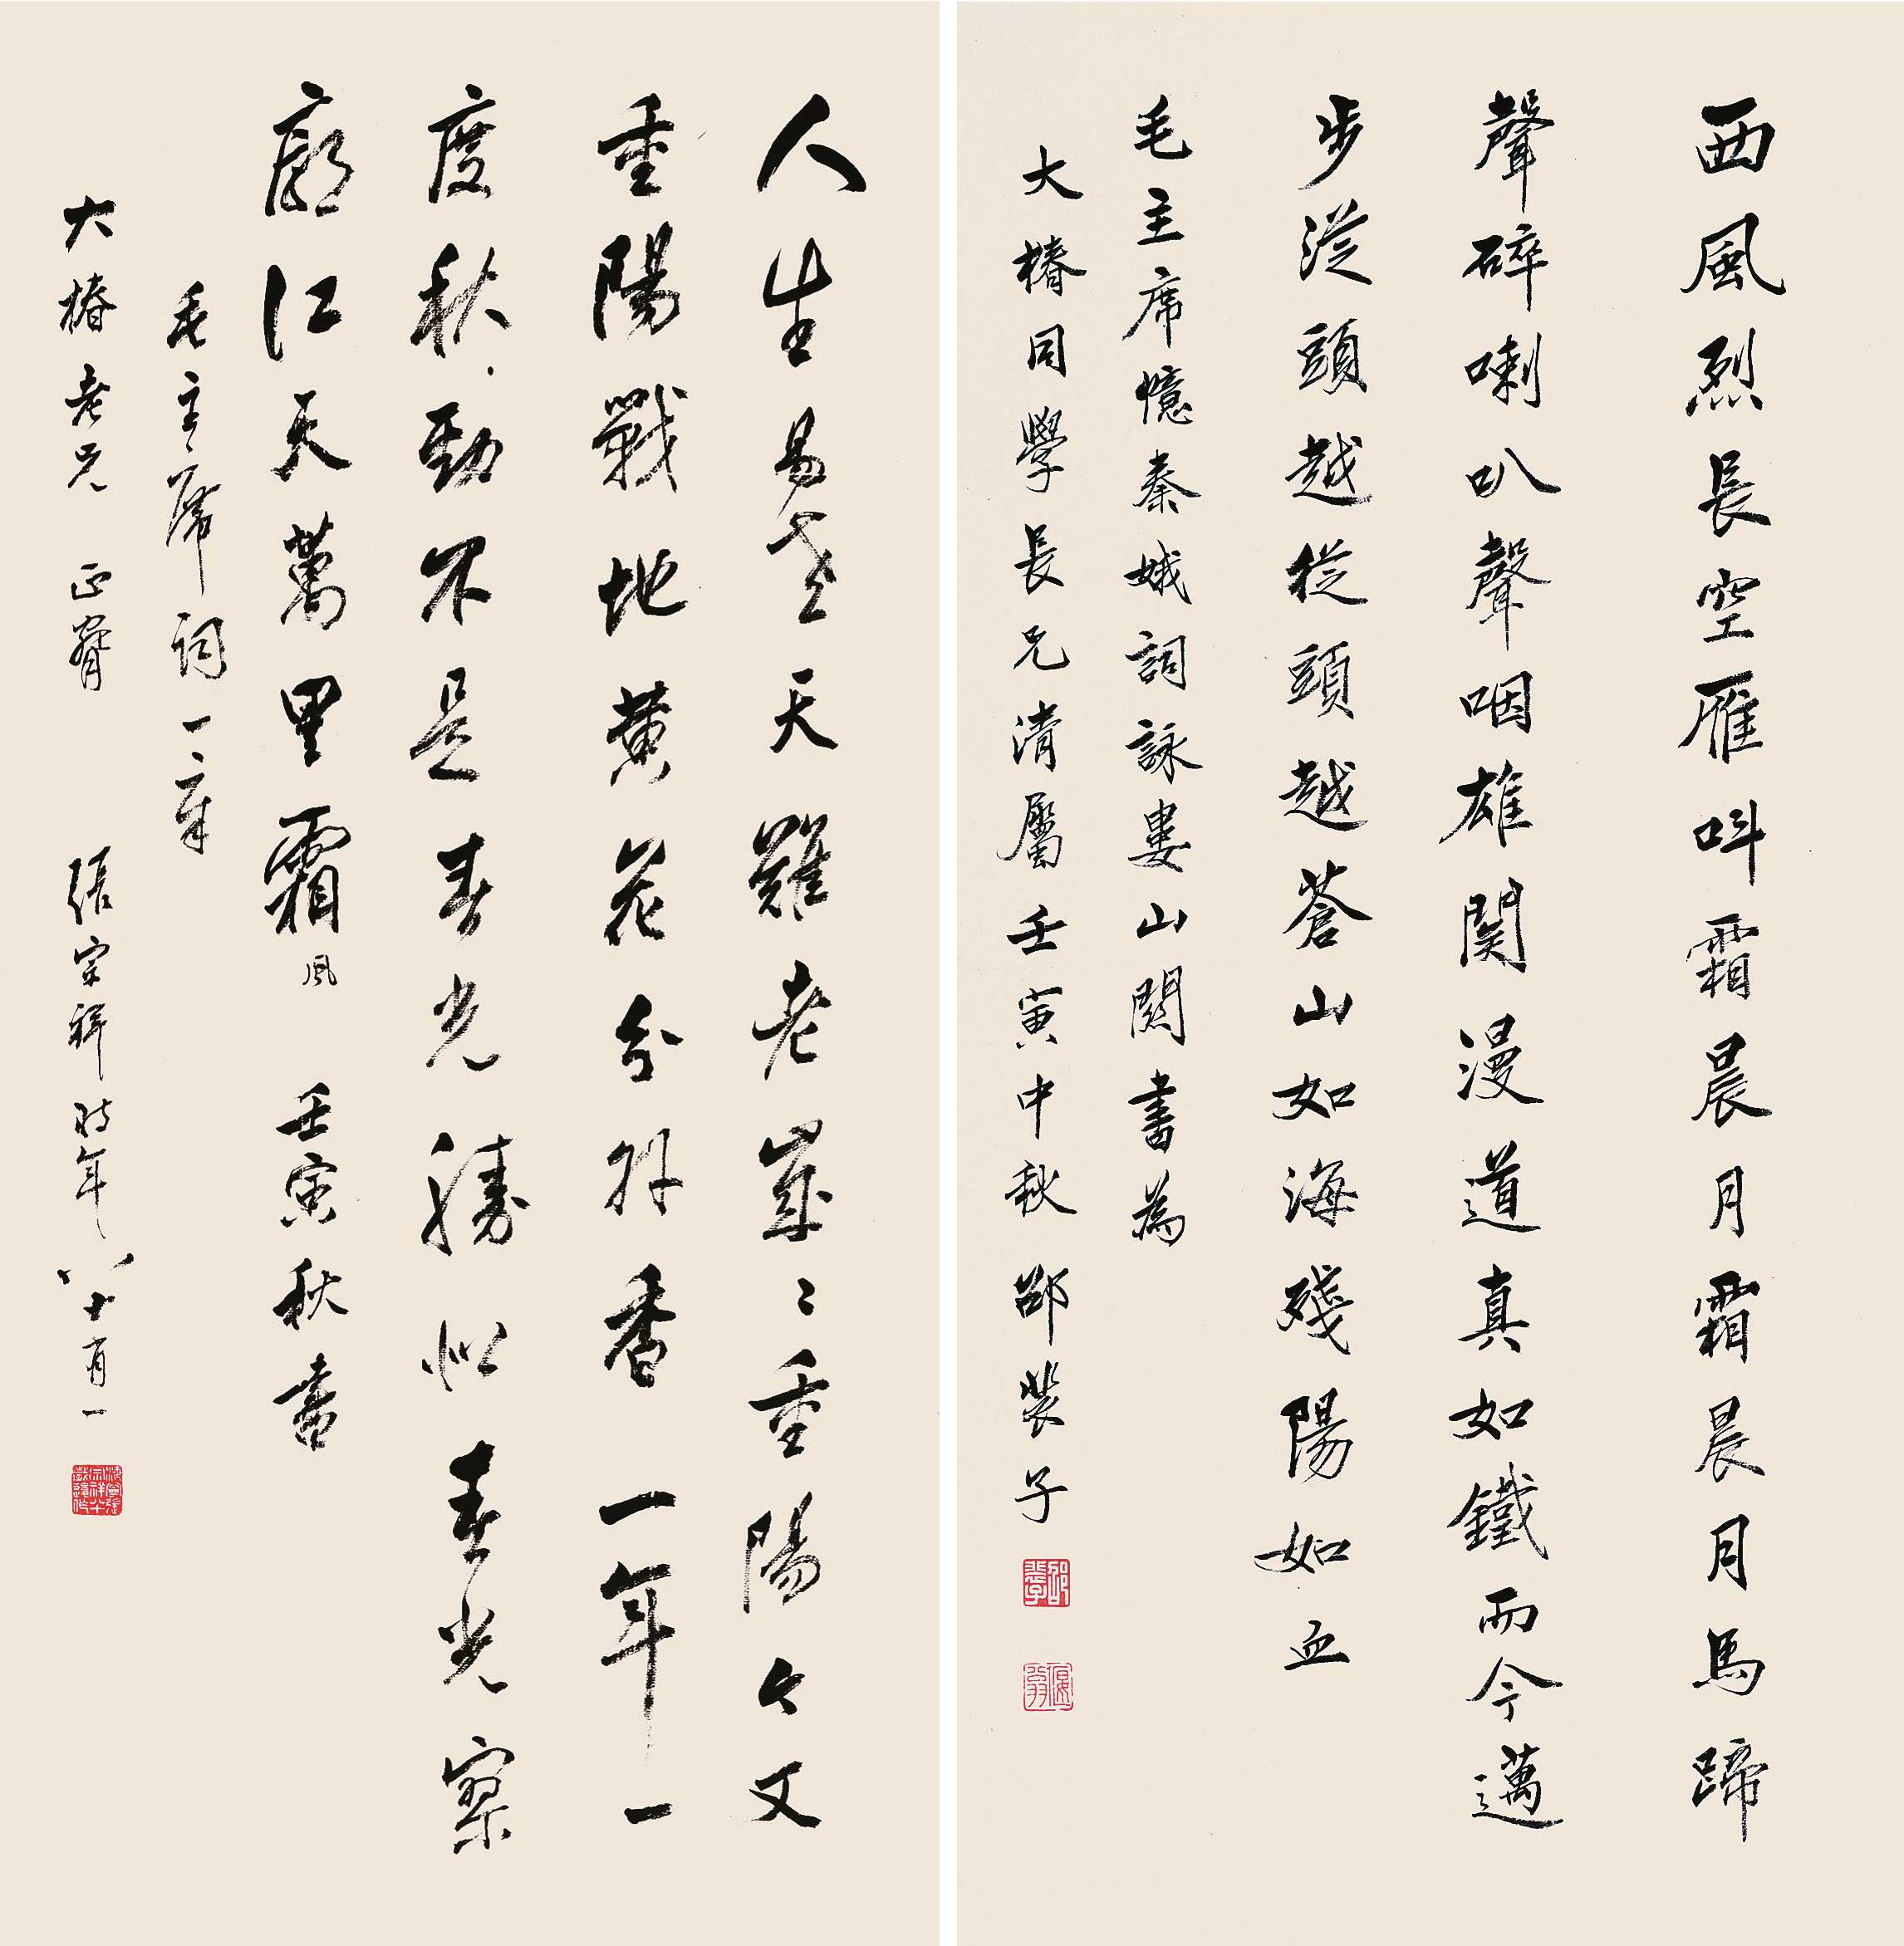 西風烈長空雁呌霜晨月霜晨月馬蹄
聲碎喇叭聲咽雄関漫道真如鐵而今邁
步從頭越從頭越蒼山如海殘陽如血
毛主席憶秦娥詞詠婁山關書為
大椿同學長兄清屬壬寅中秋邵裴子
人生易老天難老歲〻重陽今又
重陽戰地黃花分外香一年一
度秋勁不是春光勝似春光寥
廓江天萬里霜風 壬寅秋書
毛主席詞一章
大椿老兄 正腕 張宗祥時年八十有一